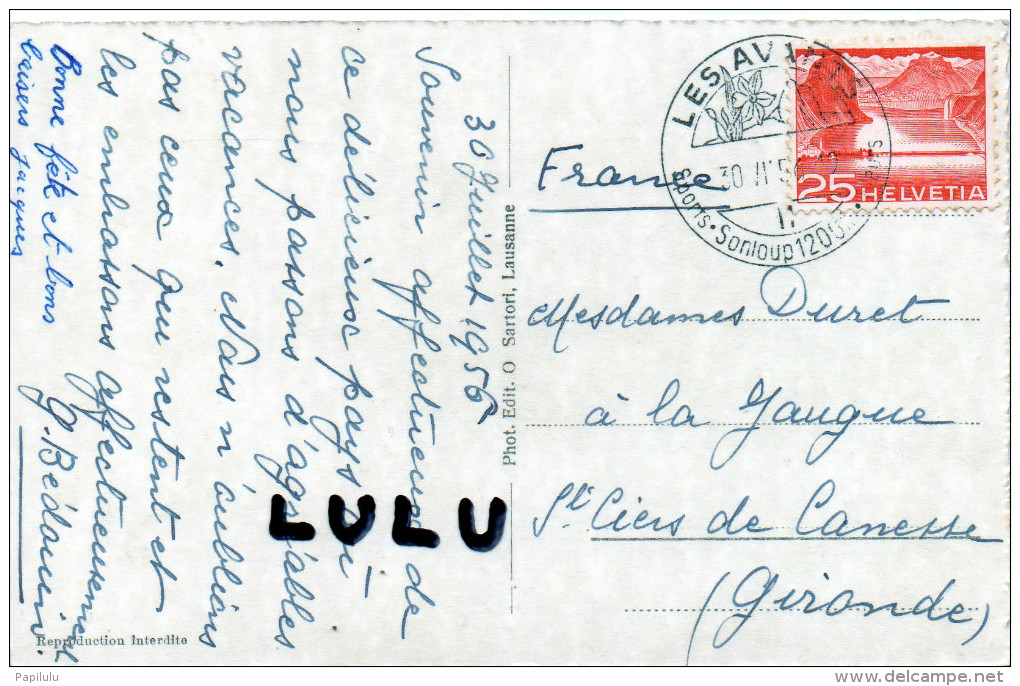 30 Juillet 1956
Souvenir affectueux de
ce délicieux pays où
nous passons d'agréables
vacances. Nous n'oublions
pas ceux qui restent et
les embrassons affectueusement
G. Bédouin.
Bonne fête et bons
baisers Jacques
Reproduction Interdite
Phot. Edit. O Sartori, Lausanne
LES AVANTS
30 VII 56
11
Sports • Sonloup 1205
25 HELVETIA
France
Mesdames Duret
à la Jaugue
St Ciers de Canesse
(Gironde)
LULU
Papilulu
delcampe.net